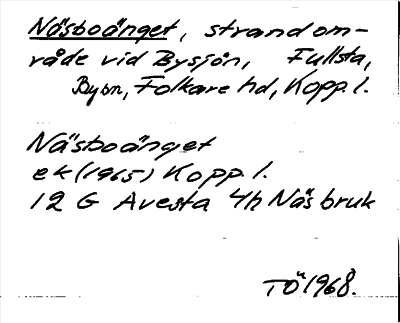 Näsboänget, strandom-
råde vid Bysjön, Fullsta,
Bysn, Folkare hd, Kopp. l.
Näsboänget
ek (1965) Kopp. l.
12 G Avesta 4h Näs bruk
TÖ 1968.